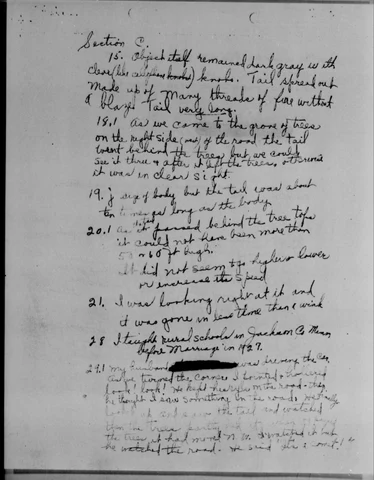 Section C
15. Object itself remained dark gray with
clear (like cellophane knobs) knobs. Tail spread out
made up of many threads of fire without
a blaze. Tail very long.
18.1 As we came to the grove of trees
on the right side (me) of the road the tail
went behind the trees but we could
see it thru & after it left the trees, otherwise
it was in clear sight.
19. size of body but the tail was about
ten times as long as the body.
20.1 As it passed behind the tree tops
it could not have been more than
60 ft high.
It did not seem to go higher or lower
or increase its speed
21. I was looking right at it and
it was gone in less time than a wink
28 I taught rural schools in Jackson Co Minn
before Marriage in 1927.
29.1 My husband was driving the car
we turned the corner I pointed,
look! We kept his eyes on the road
he thought I saw something on the road. We finally
looked up and saw the tail and watched
the trees
the trees it had moved N.W.
he watched the road. He said